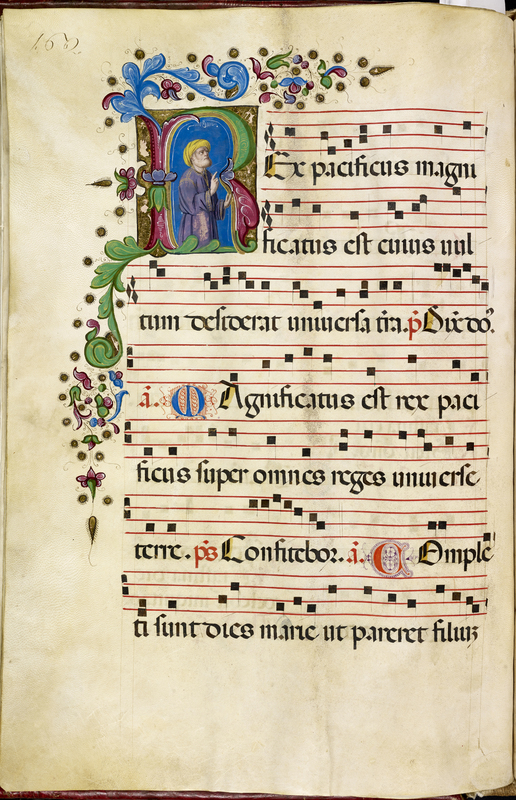 REx pacificus magni
ficatus est cuius uul
tum desiderat uniuersa tr̄a. p̄ Dix̄ do⁹.
ā. MAgnificatus est rex paci
ficus super omnes reges uniuerse
terre. p̄s Confitebor. ā. COmple
ti sunt dies marie ut pareret filiuȝ